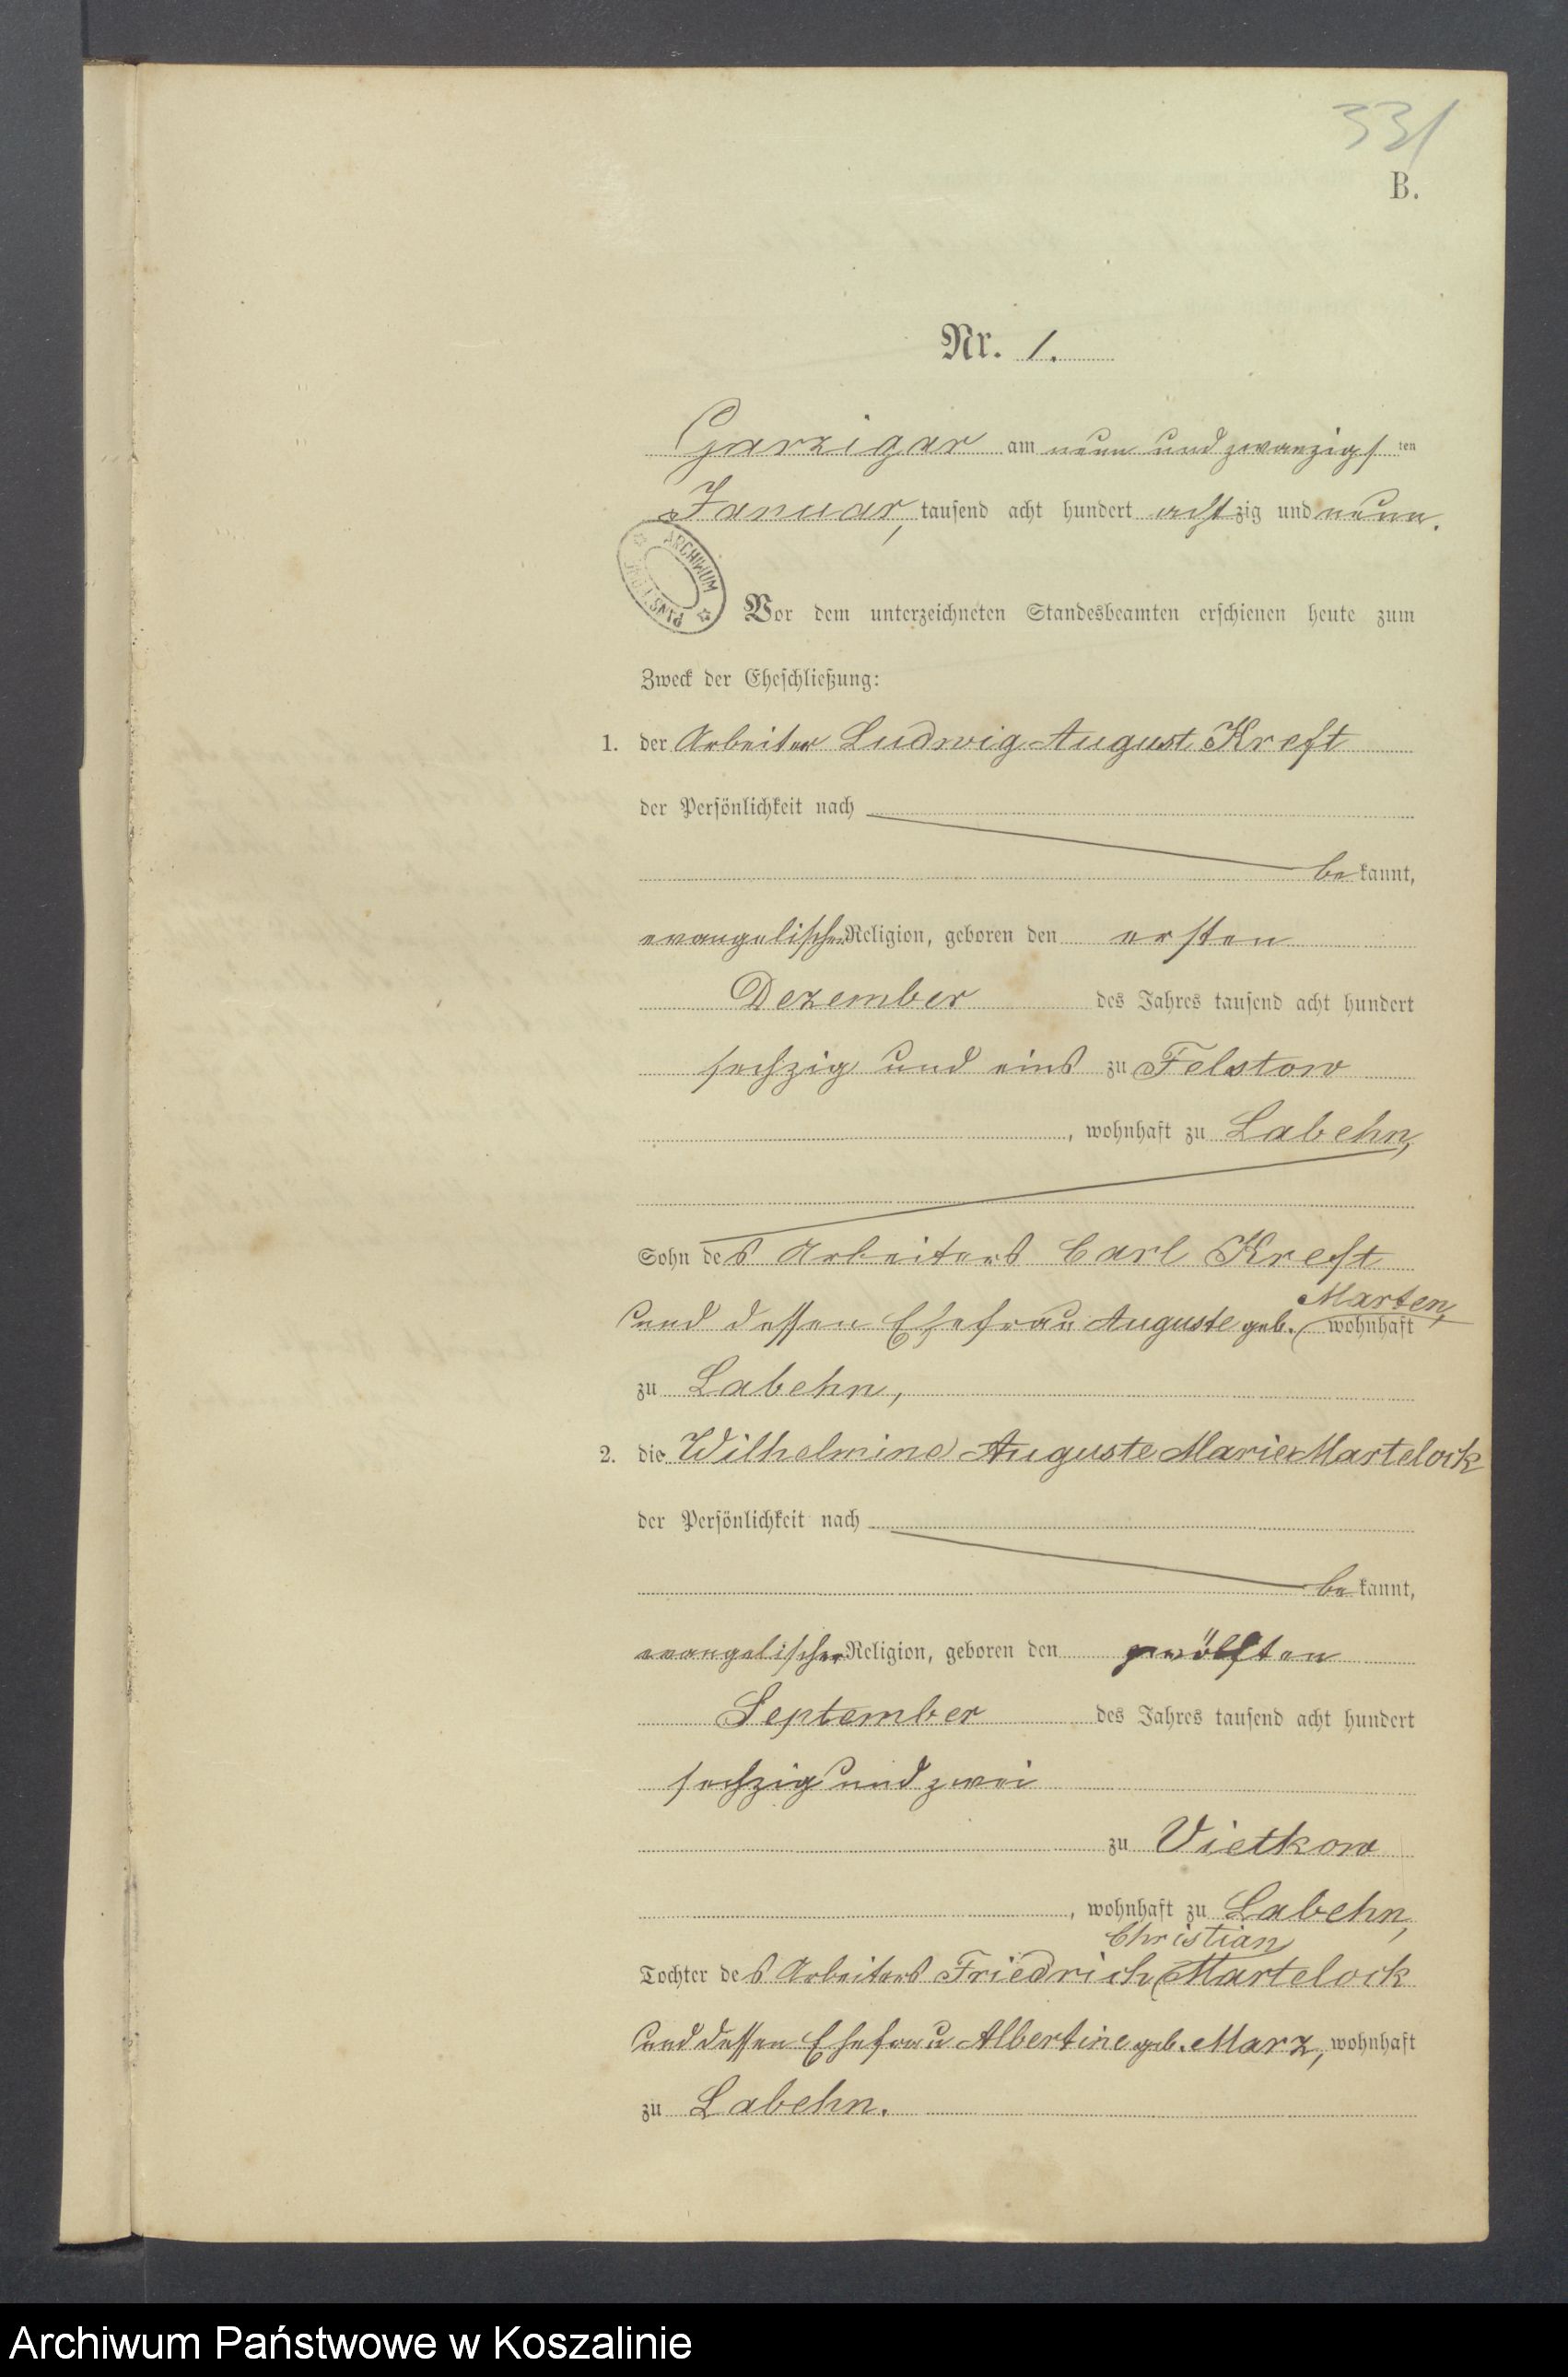 331
B.
Nr. 1.
Garzigar am neun und zwanzigsten
Januar, tausend acht hundert achtzig und neun.
ARCHIWUM PAŃSTWOWE
Vor dem unterzeichneten Standesbeamten erschienen heute zum
Zweck der Eheschließung:
1. der Arbeiter Ludwig August Kreft
der Persönlichkeit nach
bekannt,
evangelischer Religion, geboren den ersten
Dezember des Jahres tausend acht hundert
sechzig und eins zu Felstow
, wohnhaft zu Labehn,
Sohn des Arbeiters Carl Kreft
Marten,
und dessen Ehefrau Auguste geb. wohnhaft
zu Labehn,
2. die Wilhelmine Auguste Marie Martelock
der Persönlichkeit nach
bekannt,
evangelischer Religion, geboren den zwölften
September des Jahres tausend acht hundert
sechzig und zwei
zu Vietkow
, wohnhaft zu Labehn,
Christian
Tochter des Arbeiters Friedrich Martelock
und dessen Ehefrau Albertine geb. Marz, wohnhaft
zu Labehn.
Archiwum Państwowe w Koszalinie